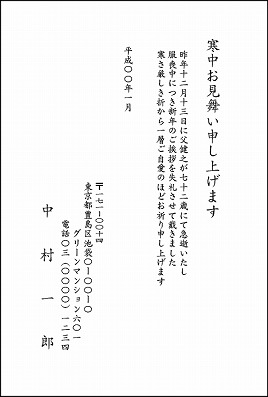 寒中お見舞い申し上げます
昨年十二月十三日に父健之が七十二歳にて急逝いたし
服喪中につき新年のご挨拶を失礼させて戴きました
寒さ厳しき折から一層ご自愛のほどお祈り申し上げます
平成〇〇年一月
〒一七一-〇〇一四
東京都豊島区池袋〇-〇〇-〇
グリーンマンション六〇一
電話〇三(〇〇〇〇)一二三四
中村一郎